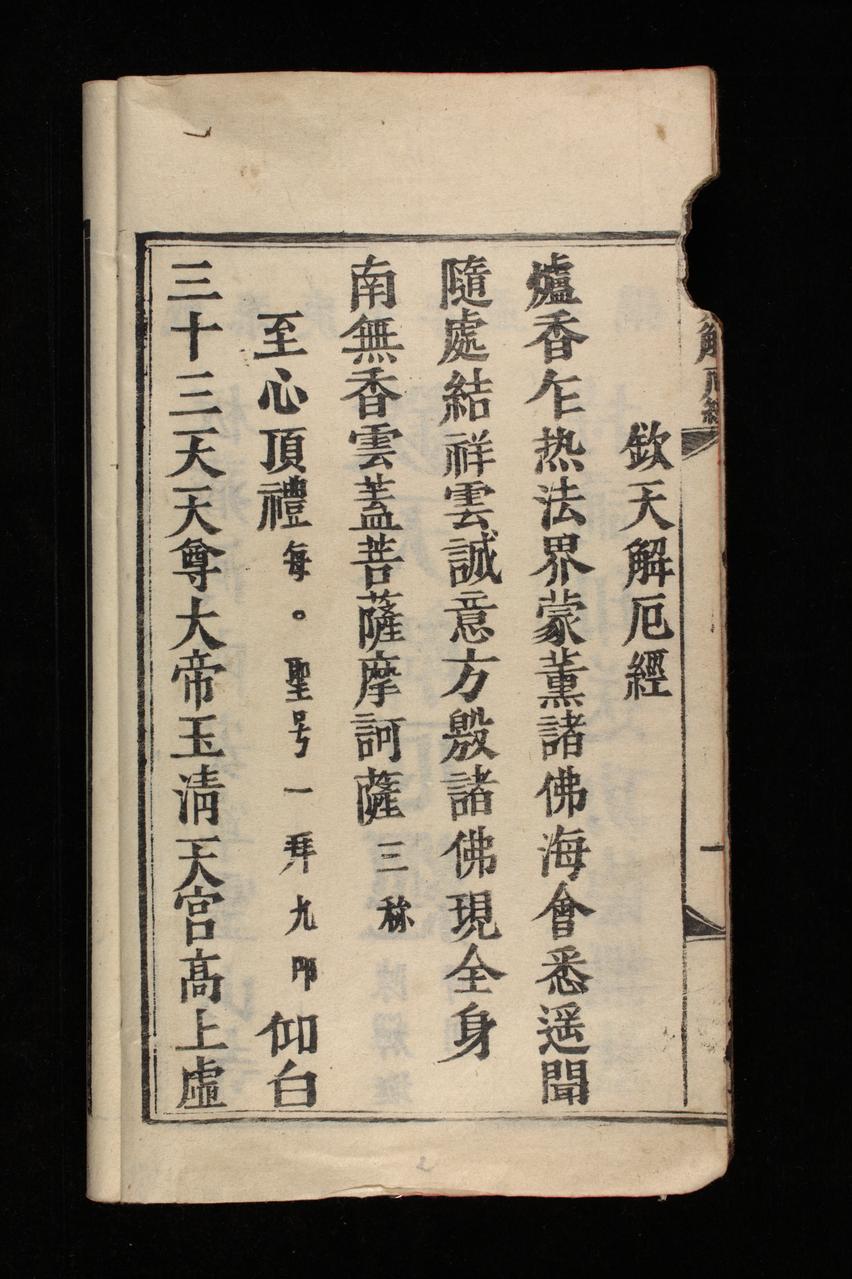 解厄經
一
欽天解厄經
爐香乍热法界蒙薰諸佛海會悉遥聞
隨處結祥雲誠意方殷諸佛現全身
南無香雲蓋菩薩摩訶薩三称
至心頂禮每。聖号一拜九叩仰白
三十三天天尊大帝玉清天宮高上虛